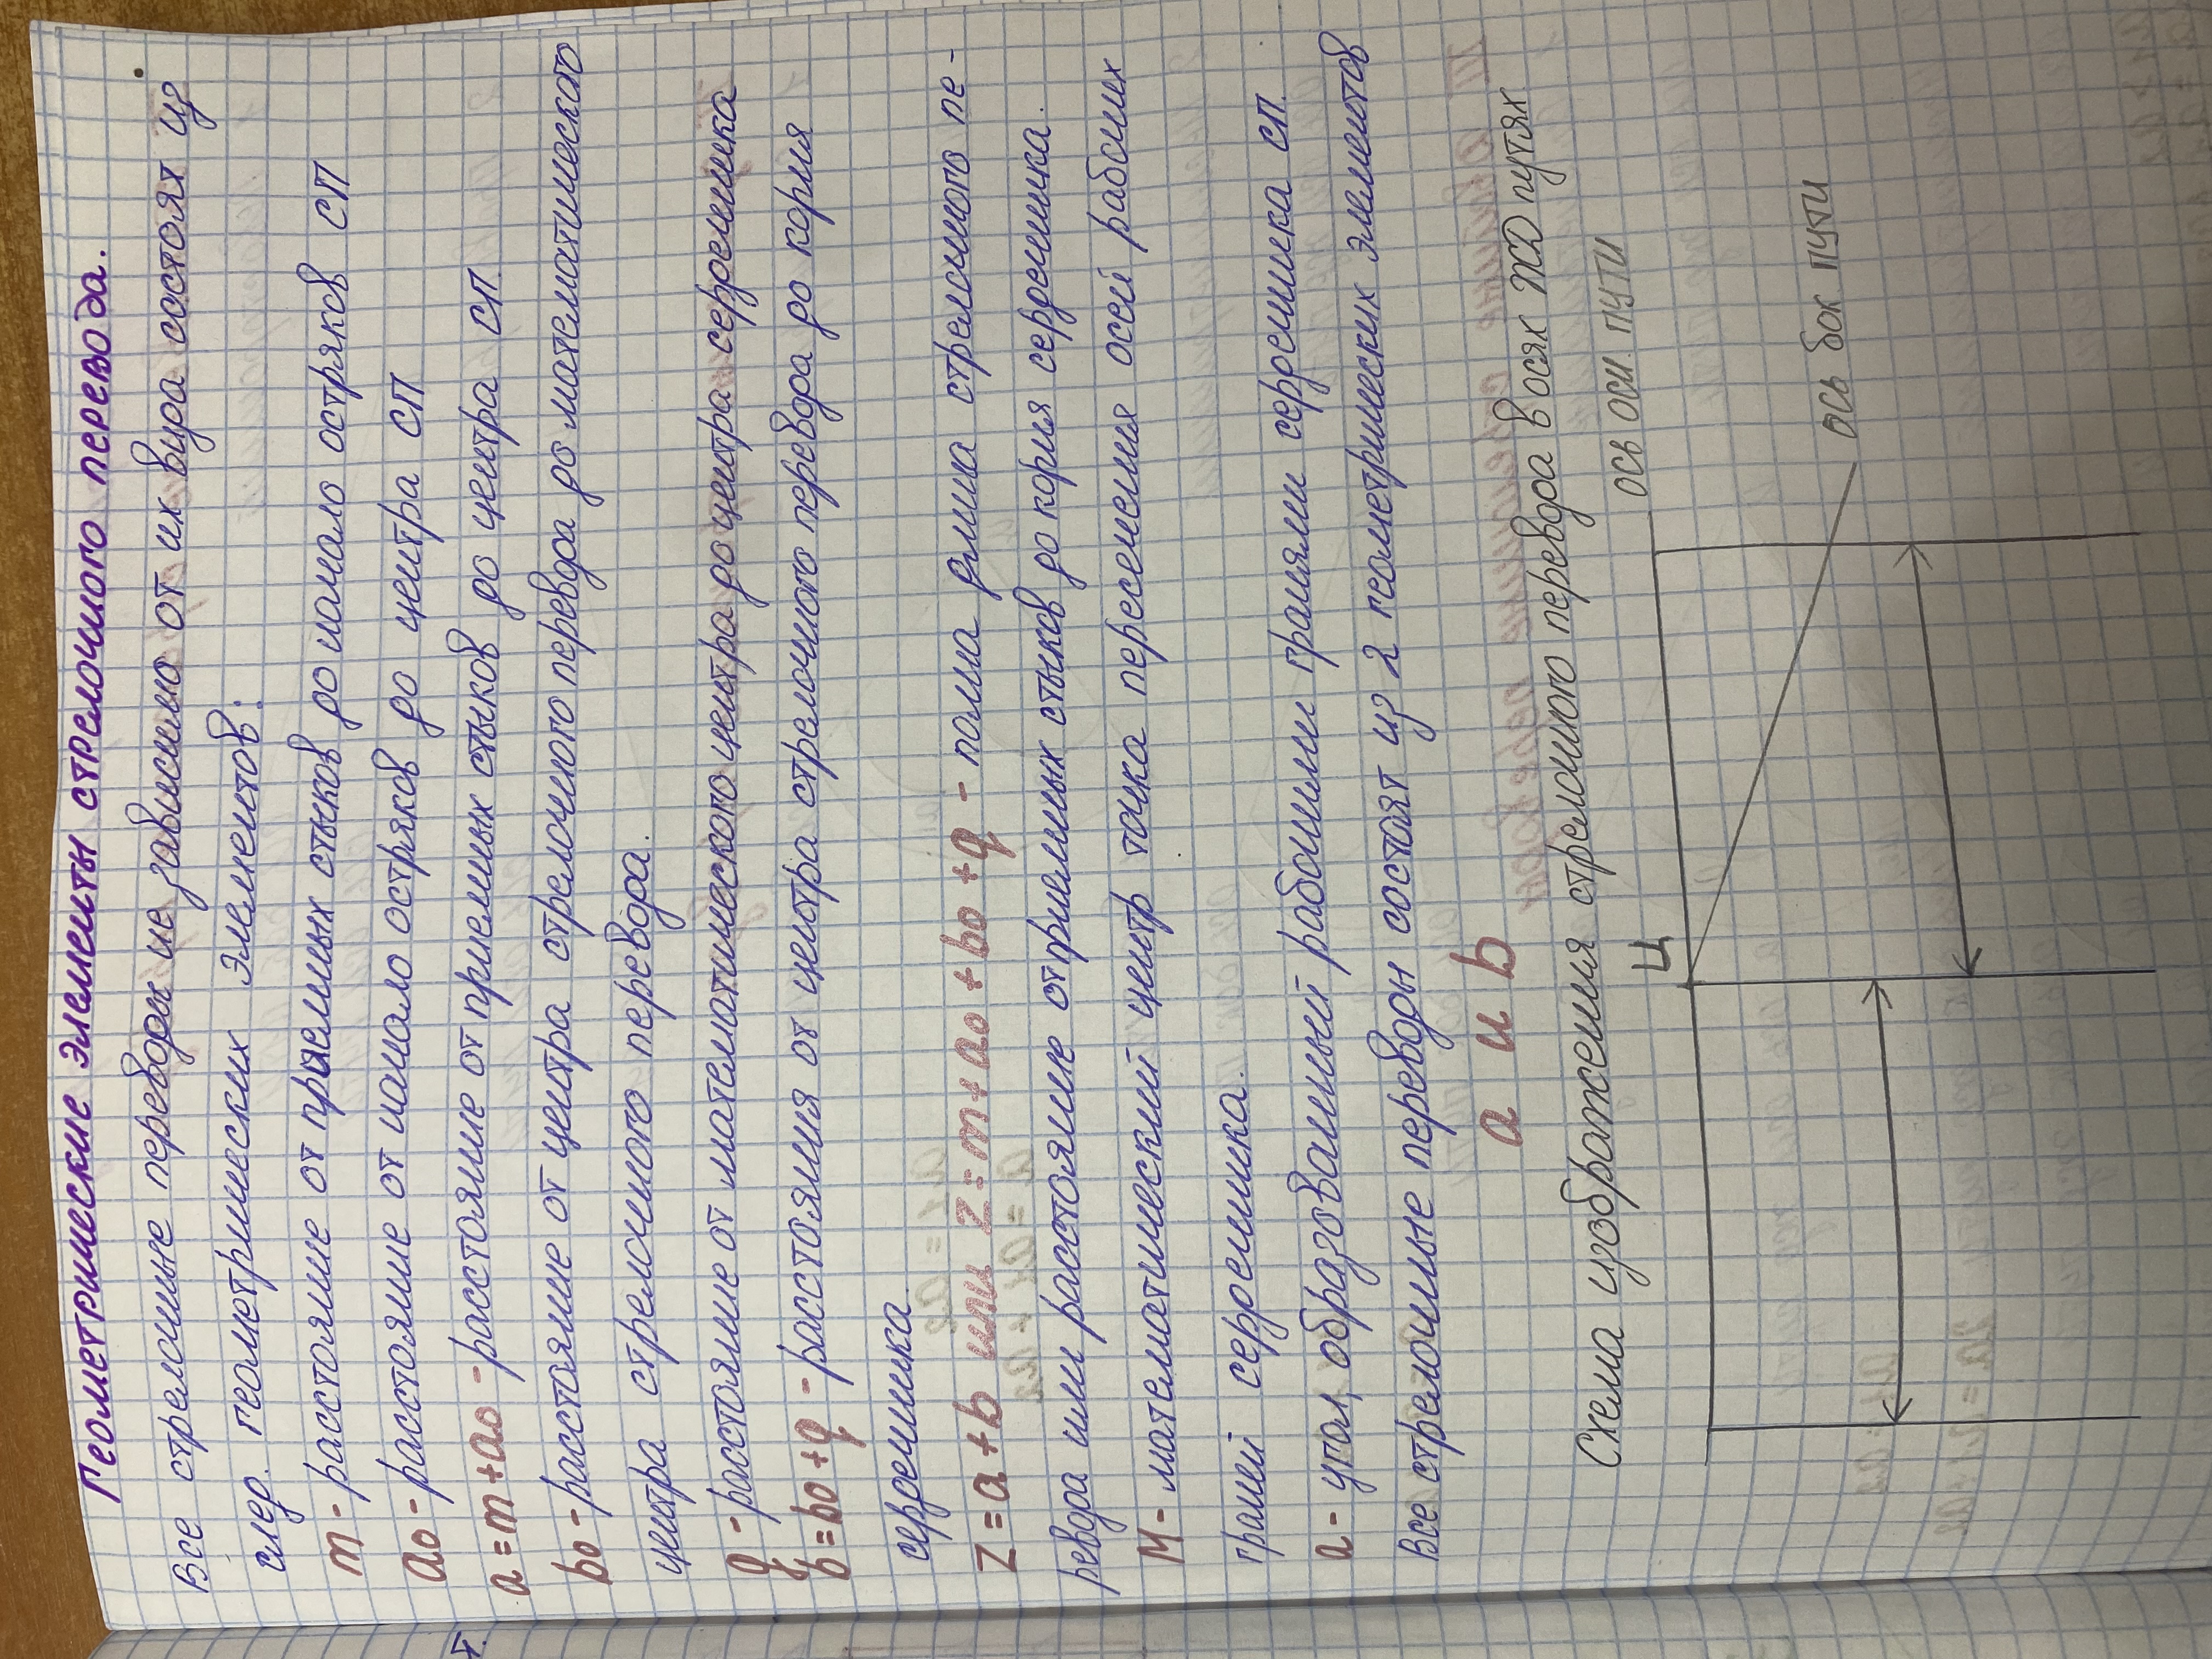 Геометрические элементы стрелочного перевода.
Все стрелочные переводы не зависимо от их вида состоях из
след. геометрических элементов:
m - расстояние от приемных стыков до начало остряков СП
a₀ - расстояние от начало остряков до центра СП
a = m + a₀ - расстояние от приемных стыков до центра СП
b₀ - расстояние от центра стрелочного перевода до математического
центра стрелочного перевода.
q - расстояние от математического центра до центра сердечника
b = b₀ + q - расстояния от центра стрелочного перевода до корня
сердечника.
Z = a + b или Z = m + a₀ + b₀ + q - полна длина стрелочного пе-
ревода или расстояние от приемных стыков до корня сердечника.
М - математический центр точка пересечения осей рабочих
граней сердечника.
a - угол, образованный рабочими гранями сердечника СП.
Все стрелочные переводы состоят из 2 геометрических элементов
a и b
Схема изображения стрелочного перевода в осях ЖД путях
Ц
ось осн. пути
ось бок пути
т.